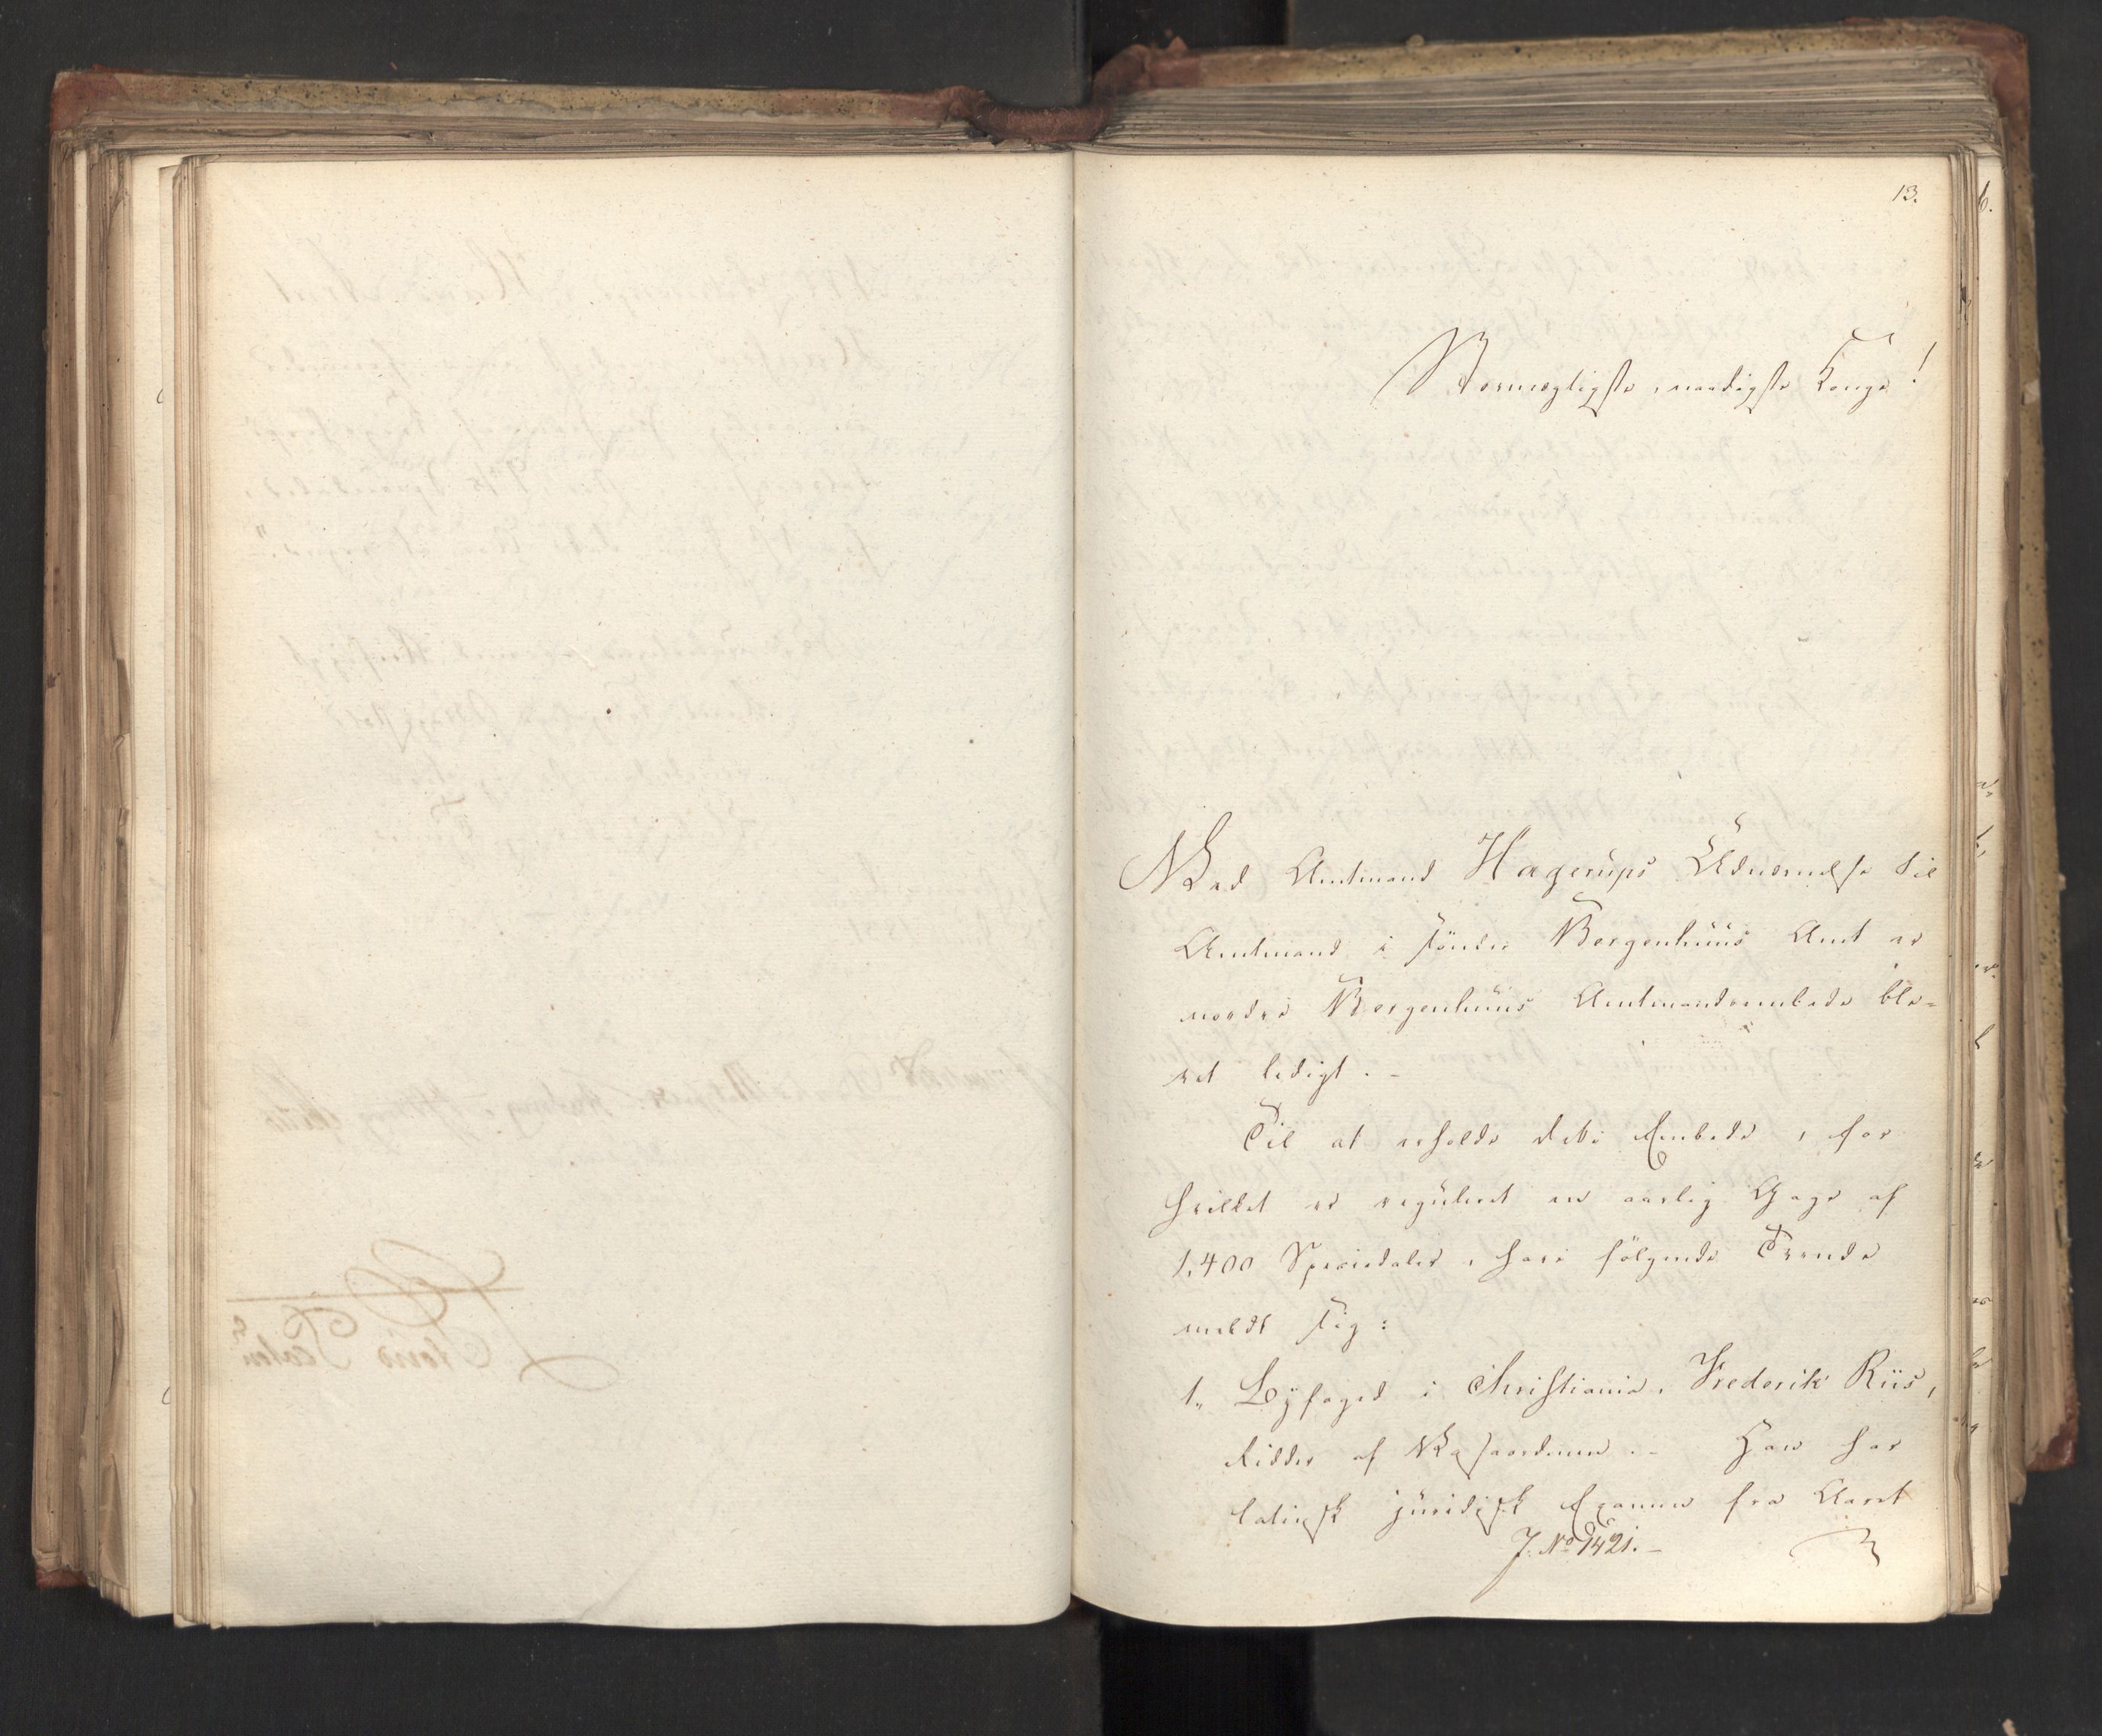 13.
Stormægtigste, naadigste Konge!
Ved Amtmand Hagerups Udnævnelse til
Amtmand i søndre Bergenhuus Amt er
nordre Bergenhuus Amtmandsembede ble-
vet ledigt. -
Til at erholde dette Embede, for
hvilket er reguleret en aarlig Gage af
1,400 Speciedaler, have følgende Trende
meldt sig:
1, Byfoged i Christiania, Frederik Riis,
Ridder af Vasaordenen. - Han har
latinsk juridisk Examen fra Aaret
J. No 1421. -